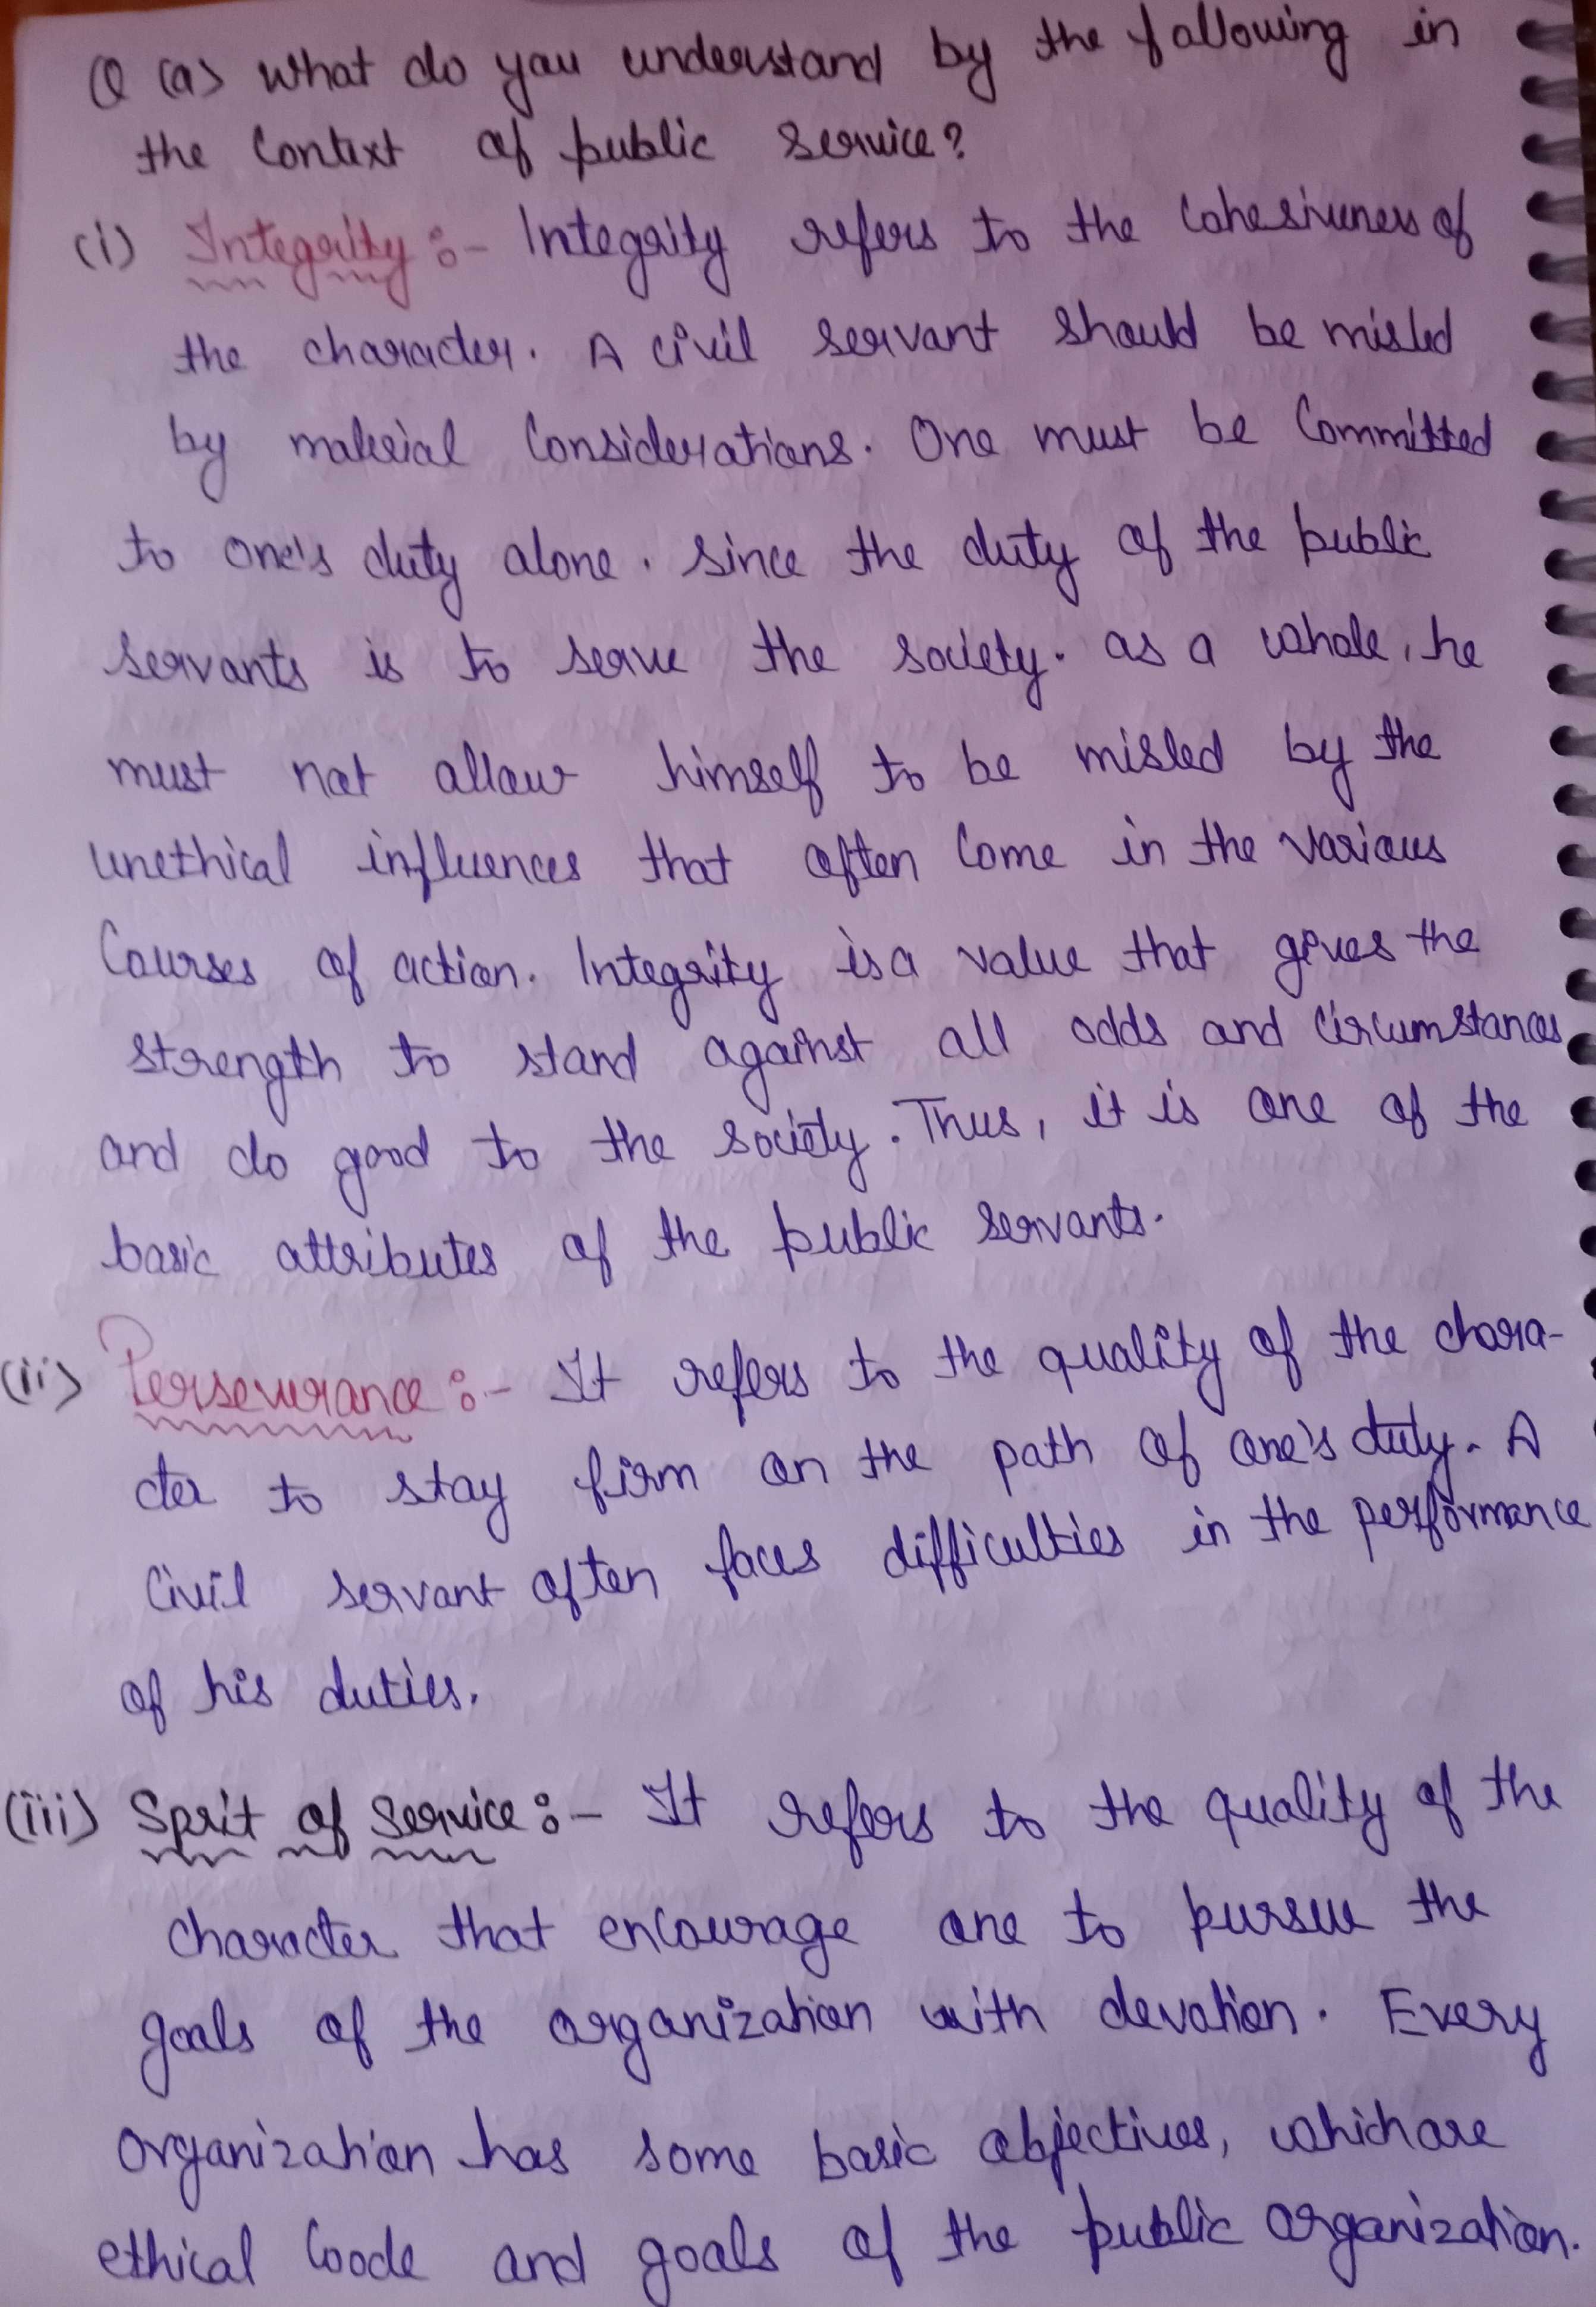 Q (a) What do you understand by the following in
the Context of public Service?
(i) Integrity :- Integrity refers to the Cohesiveness of
the character. A civil servant should be misled
by material Considerations. One must be Committed
to one's duty alone. Since the duty of the public
servants is to serve the society. as a whole, he
must not allow himself to be misled by the
unethical influences that often Come in the various
Courses of action. Integrity is a value that gives the
strength to stand against all odds and Circumstances
and do good to the society. Thus, it is one of the
basic attributes of the public servants.
(ii) Perseverance :- It refers to the quality of the chara-
cter to stay firm on the path of one's duty. A
Civil servant often faces difficulties in the performance
of his duties.
(iii) Sprit of Service :- It refers to the quality of the
character that encourage one to pursue the
goals of the organization with devotion. Every
organization has some basic objectives, which are
ethical Coode and goals of the public organization.